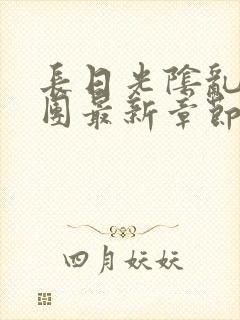 長日光陰亂
團最新章節
四月妖妖